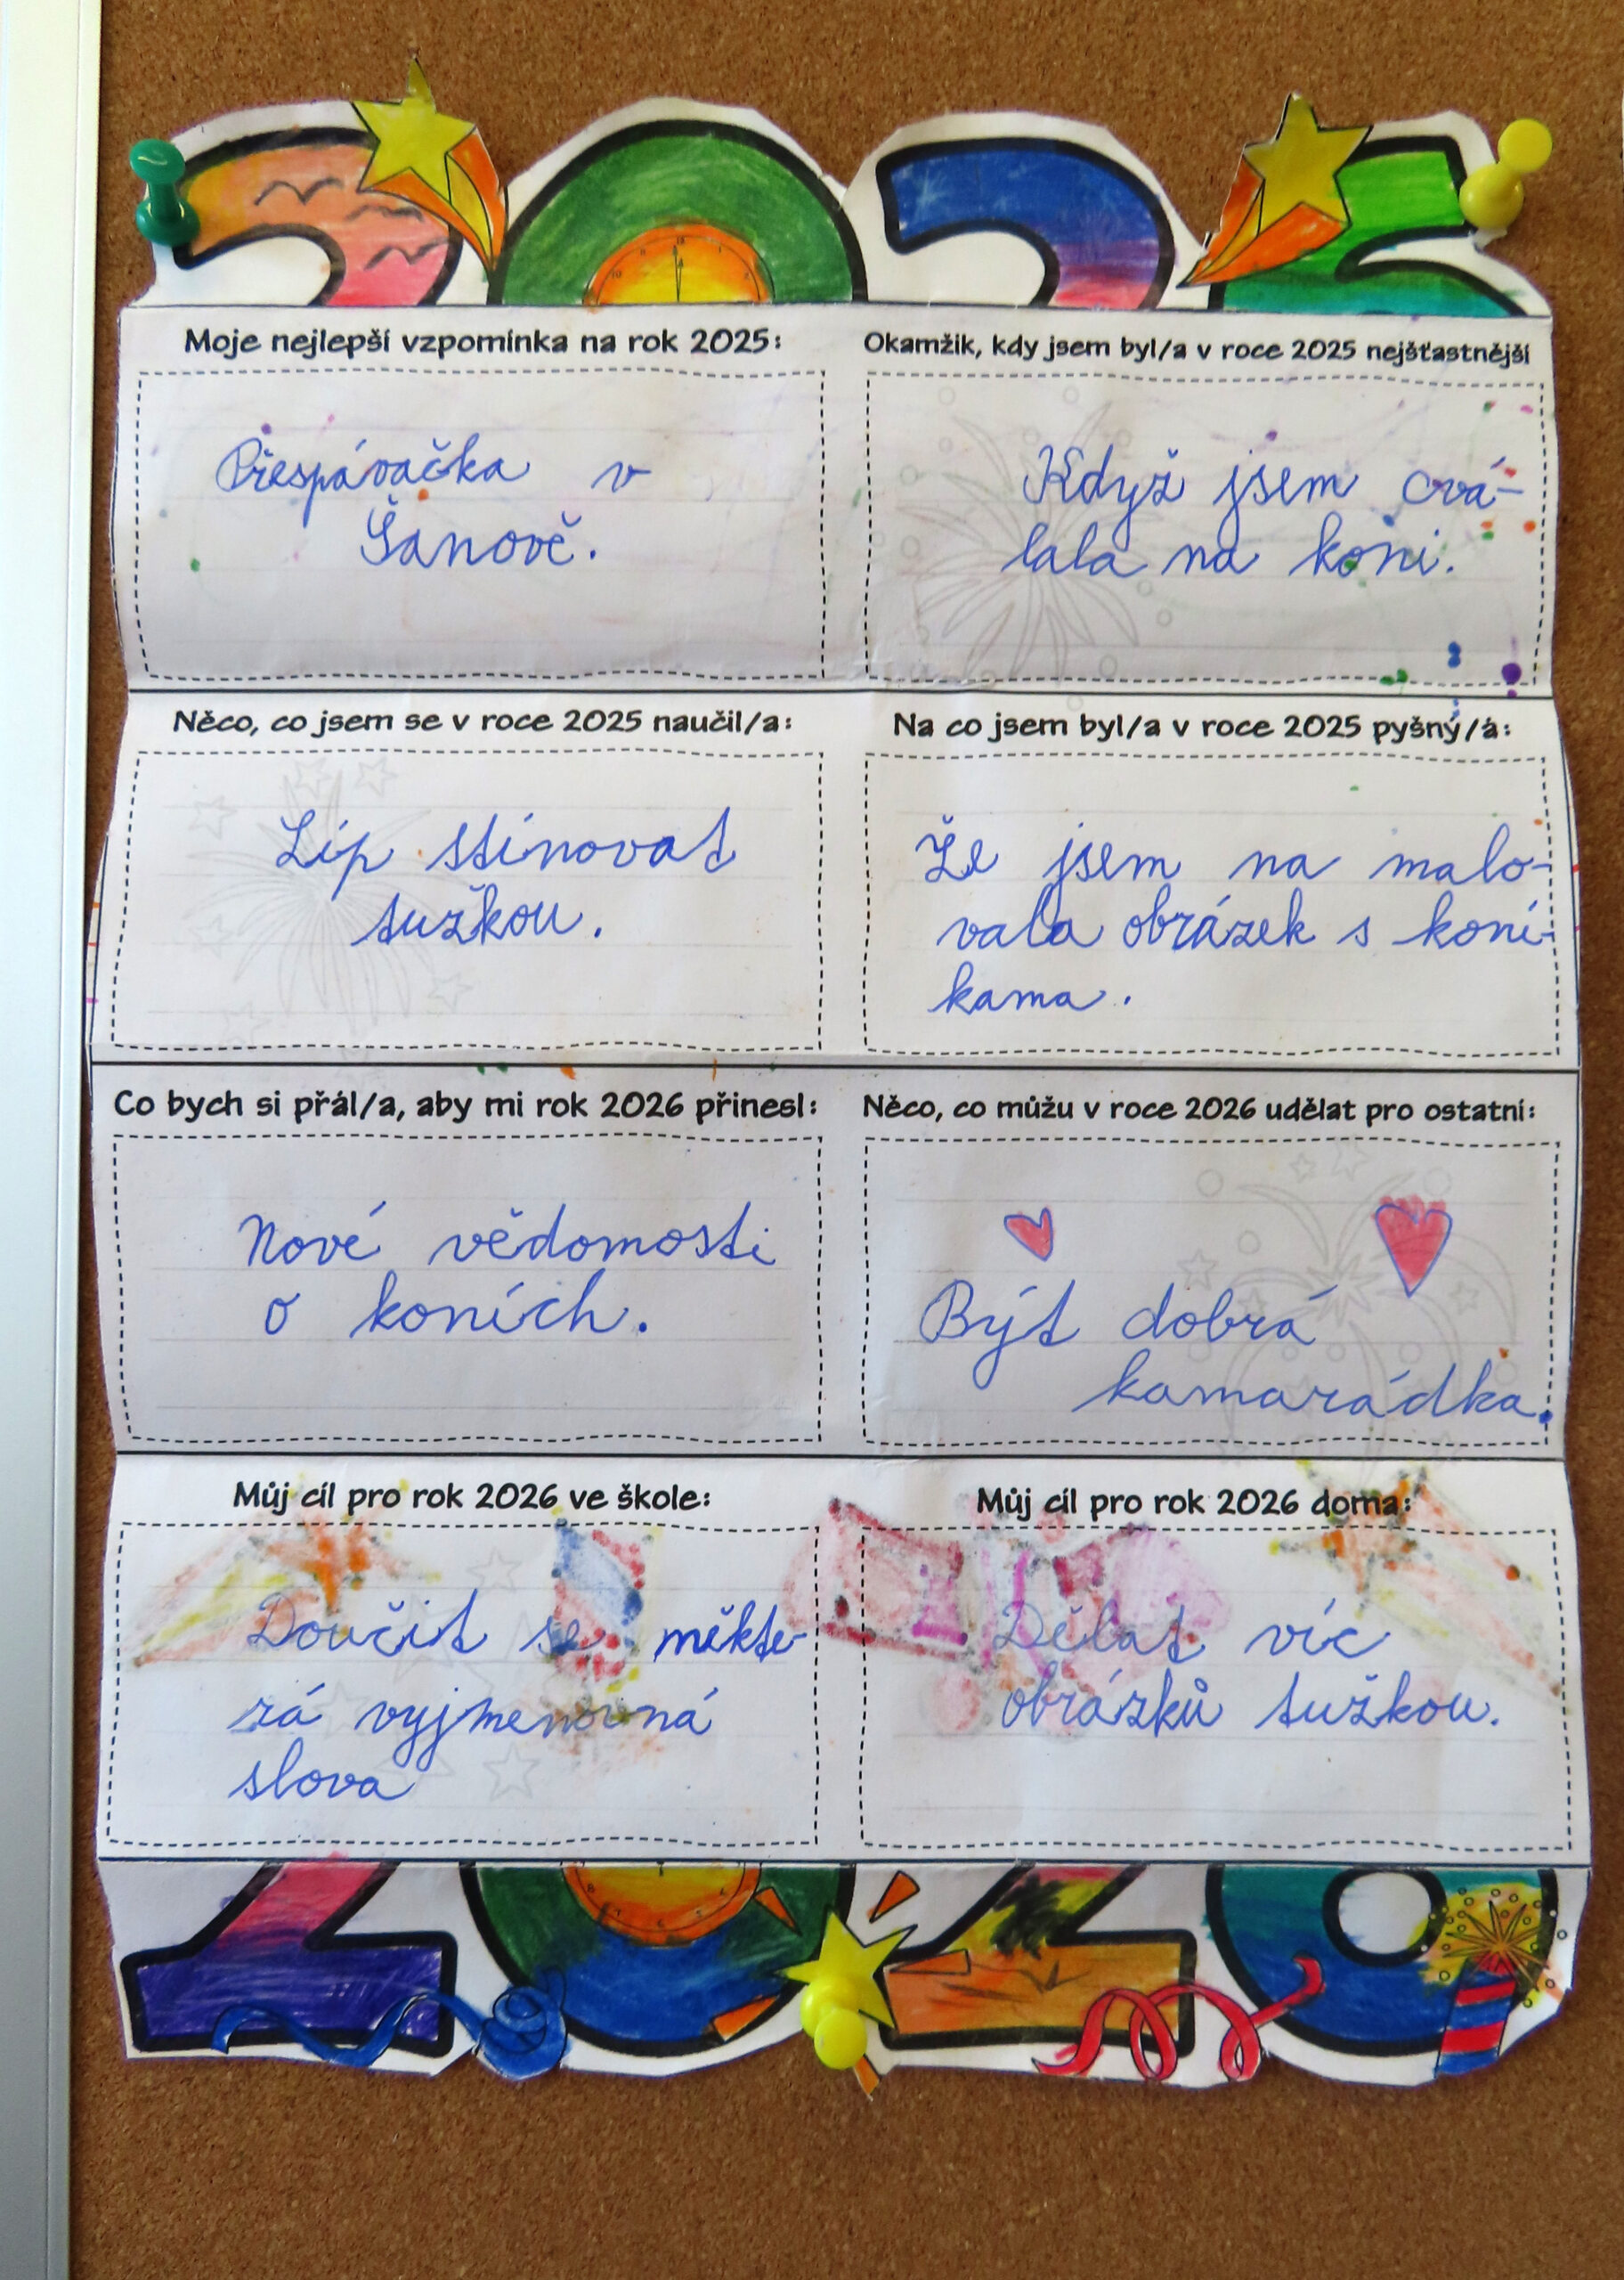 2025
Moje nejlepší vzpomínka na rok 2025:
Přespávačka v
Šanově.
Okamžik, kdy jsem byl/a v roce 2025 nejšťastnější
Když jsem cvá-
lala na koni.
Něco, co jsem se v roce 2025 naučil/a:
Líp stínovat
tužkou.
Na co jsem byl/a v roce 2025 pyšný/á:
Že jsem na malo-
vala obrázek s koní-
kama.
Co bych si přál/a, aby mi rok 2026 přinesl:
Nové vědomosti
o koních.
Něco, co můžu v roce 2026 udělat pro ostatní:
Být dobrá
kamarádka.
Můj cíl pro rok 2026 ve škole:
Doučit se měkte-
rá vyjmenovná
slova
Můj cíl pro rok 2026 doma:
Dělat víc
obrázků tužkou.
2026